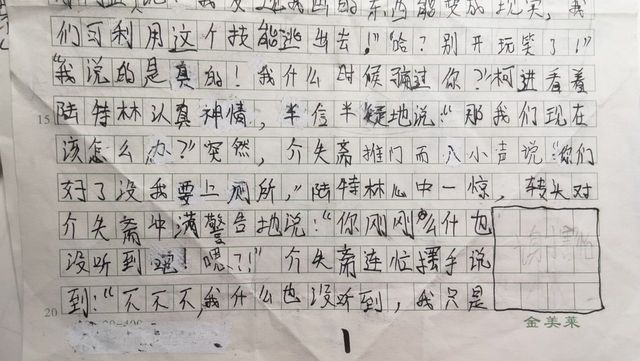 们可利用这个技能逃出去！”“哈？别开玩笑了！”
“我说的是真的！我什么时候骗过你？”柯进看着
15 陆特林认真神情，半信半疑地说：“那我们现在
该怎么办？”突然，介失斋推门而入小声说“你们
好了没我要上厕所，”陆特林心中一惊，转头对
介失斋冲满警告地说：“你刚刚什也
没听到 嗯？！”介失斋连忙摆手说
20 到：“不不不，我什么也没听到，我只是
金美莱
1